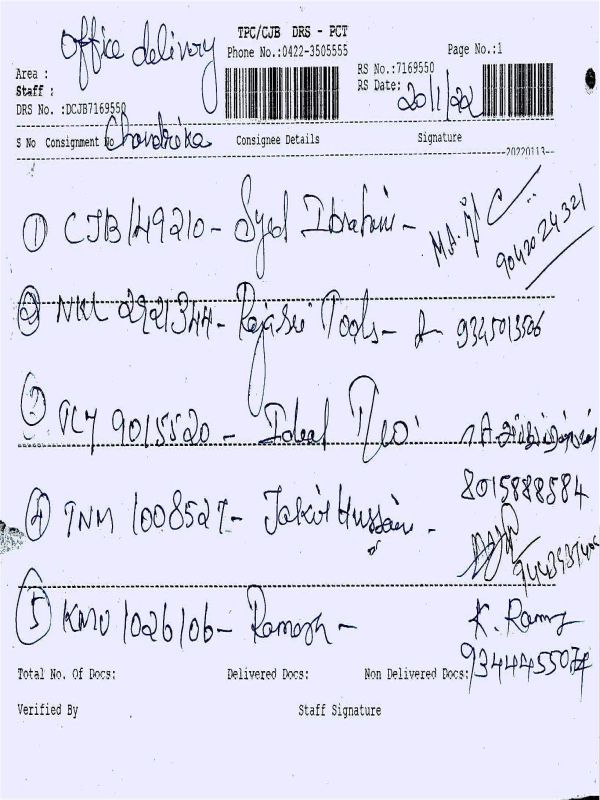 Office delivery
TPC/CJB DRS - PCT
Phone No.:0422-3505555 Page No.:1
Area : RS No.:7169550
Staff : RS Date: 20/1/22
DRS No. :DCJB7169550
S No Consignment No Chandrika Consignee Details Signature
20220113
① CJB 149210 - Syed Ibrahim -
9042024321
② NKL 2921344 - Rajasri Tools - 9345013506
③ 9015520 - Ideal
8015888584
④ TNM 1008527 - Jakir Hussain -
⑤ 1026106 - Ramesh - K. Ramy
9344455074
Total No. Of Docs: Delivered Docs: Non Delivered Docs:
Verified By Staff Signature